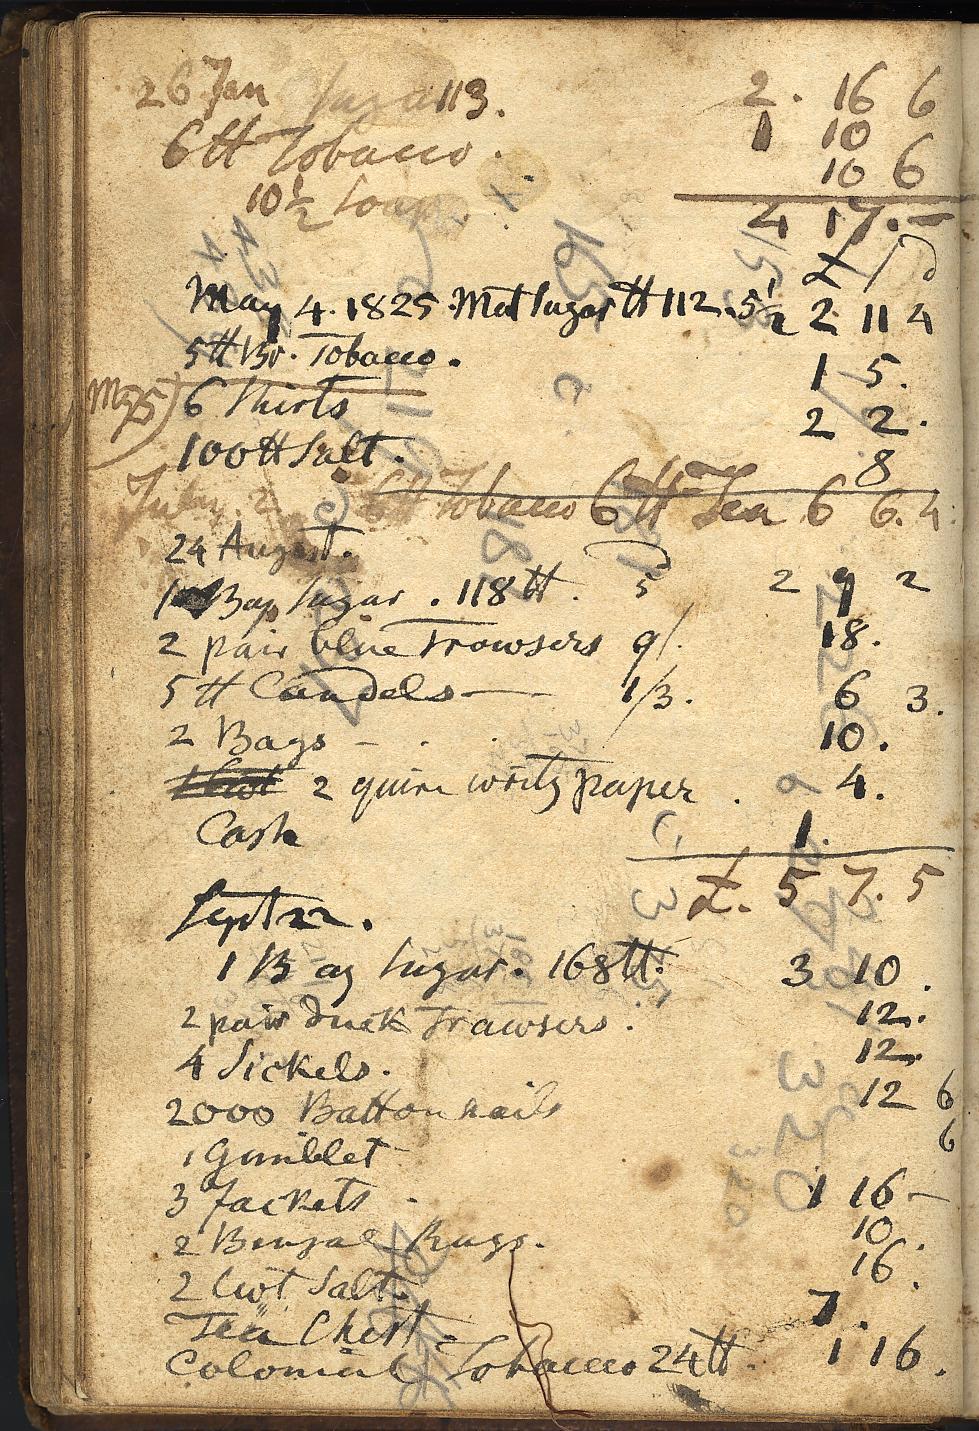 26 Jan Sugar 113. 2. 16 6
6 lb Tobacco. 1 10
10½ Soap. 10 6
4 17. —
£ / D
May 4. 1825 Mat Sugar lb 112. 5½ 2 11 4
5 lb Br. Tobacco. 1 5.
May 5) 6 Shirts 2 2.
100 lb Salt. 8
July. 2 6 lb Tobacco 6 lb Tea 6 6. 4
24 August.
1 Bag Sugar. 118 lb. 5 2 9 2
2 pair blue Trowsers 9/. 18.
5 lb Candels — 1/3. 6 3.
2 Bags - . . 10.
2 quire writg paper. 4.
Cash 1.
£. 5 7. 5
Sept 22.
1 Bag Sugar. 168 lb. 3 10.
2 pair duck Trawsers. 12.
4 Sickels. 12.
2000 Batton nails 12 6
1 Gimblet 6
3 Jackets - 1 16 —
2 Bengal Rugs. 10.
2 Cwt Salt. 16.
Tea Chest - 7.
Colonial Tobacco 24 lb. 1 16.